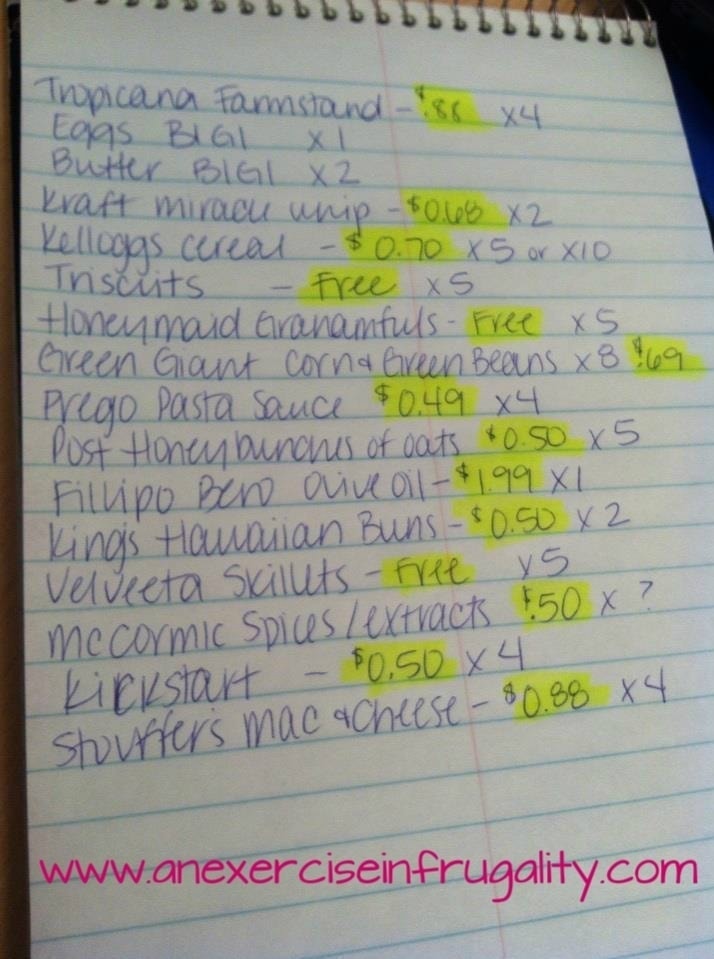 Tropicana Farmstand - $.88 x4
Eggs B1G1 x1
Butter B1G1 x2
Kraft miracle whip - $0.68 x2
Kelloggs cereal - $0.70 x5 or x10
Triscuits - Free x5
Honeymaid Grahamfuls - Free x5
Green Giant Corn & Green Beans x8 $.69
Prego Pasta Sauce $0.49 x4
Post Honeybunches of oats $0.50 x5
Fillipo Bero Olive oil - $1.99 x1
Kings Hawaiian Buns - $0.50 x2
Velveeta Skillets - Free x5
McCormic Spices/extracts $.50 x ?
Kickstart - $0.50 x4
Stouffer's Mac & Cheese - $0.88 x4
www.anexerciseinfrugality.com